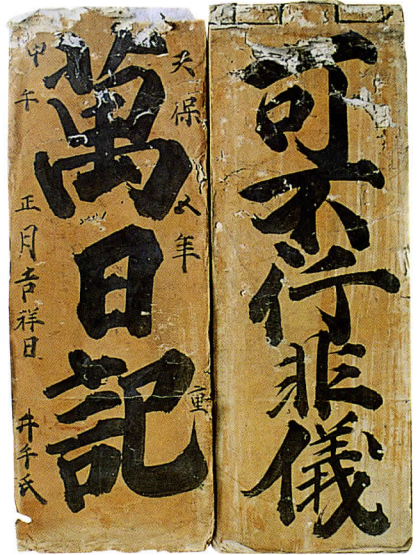 可不行非儀
天保五年 重
萬日記
甲午 正月吉祥日 井手氏